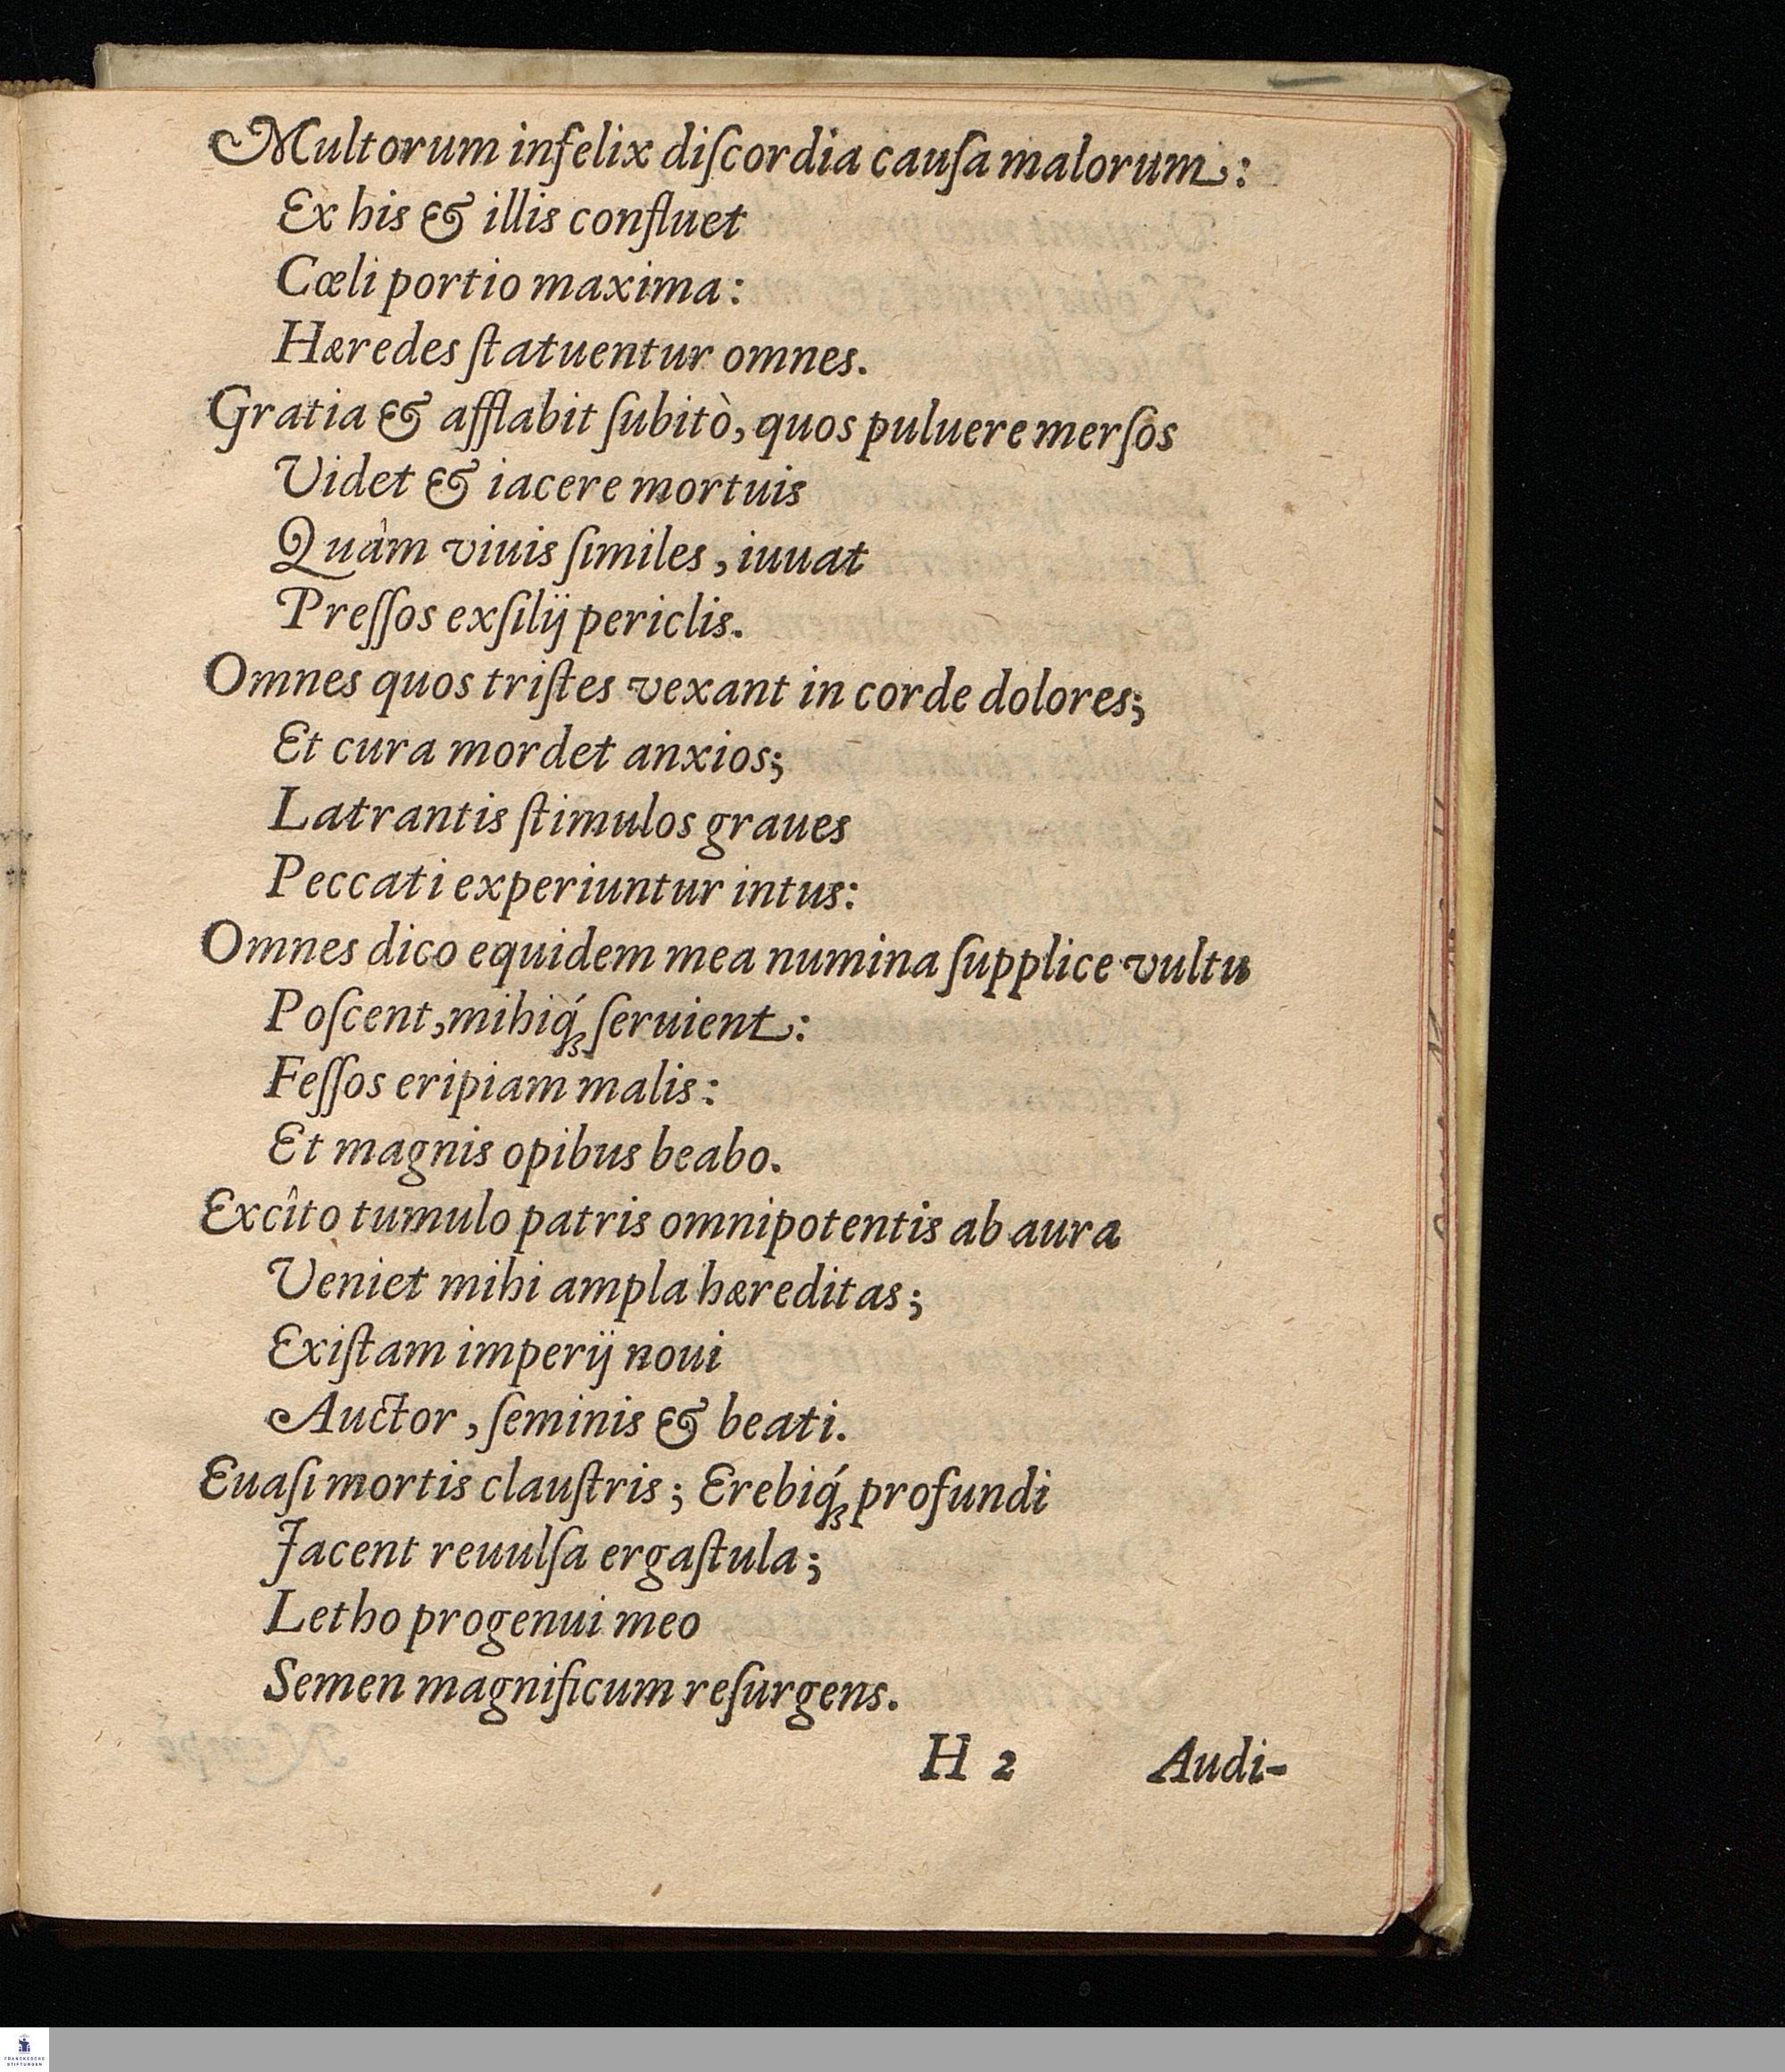 Multorum infelix diſcordia cauſa malorum:
Ex his & illis confluet
Cœli portio maxima:
Hæredes ſtatuentur omnes.
Gratia & afflabit ſubitò, quos puluere merſos
Videt & iacere mortuis
Quàm viuis ſimiles, iuuat
Preſſos exſilij periclis.
Omnes quos triſtes vexant in corde dolores;
Et cura mordet anxios;
Latrantis ſtimulos graues
Peccati experiuntur intus:
Omnes dico equidem mea numina ſupplice vultu
Poſcent, mihiq́ꝫ ſeruient:
Feſſos eripiam malis:
Et magnis opibus beabo.
Excîto tumulo patris omnipotentis ab aura
Veniet mihi ampla hæreditas;
Exiſtam imperij noui
Auctor, ſeminis & beati.
Euaſi mortis clauſtris; Erebiq́ꝫ profundi
Jacent reuulſa ergaſtula;
Letho progenui meo
Semen magnificum reſurgens.
H 2 Audi-
FRANCKESCHE
STIFTUNGEN